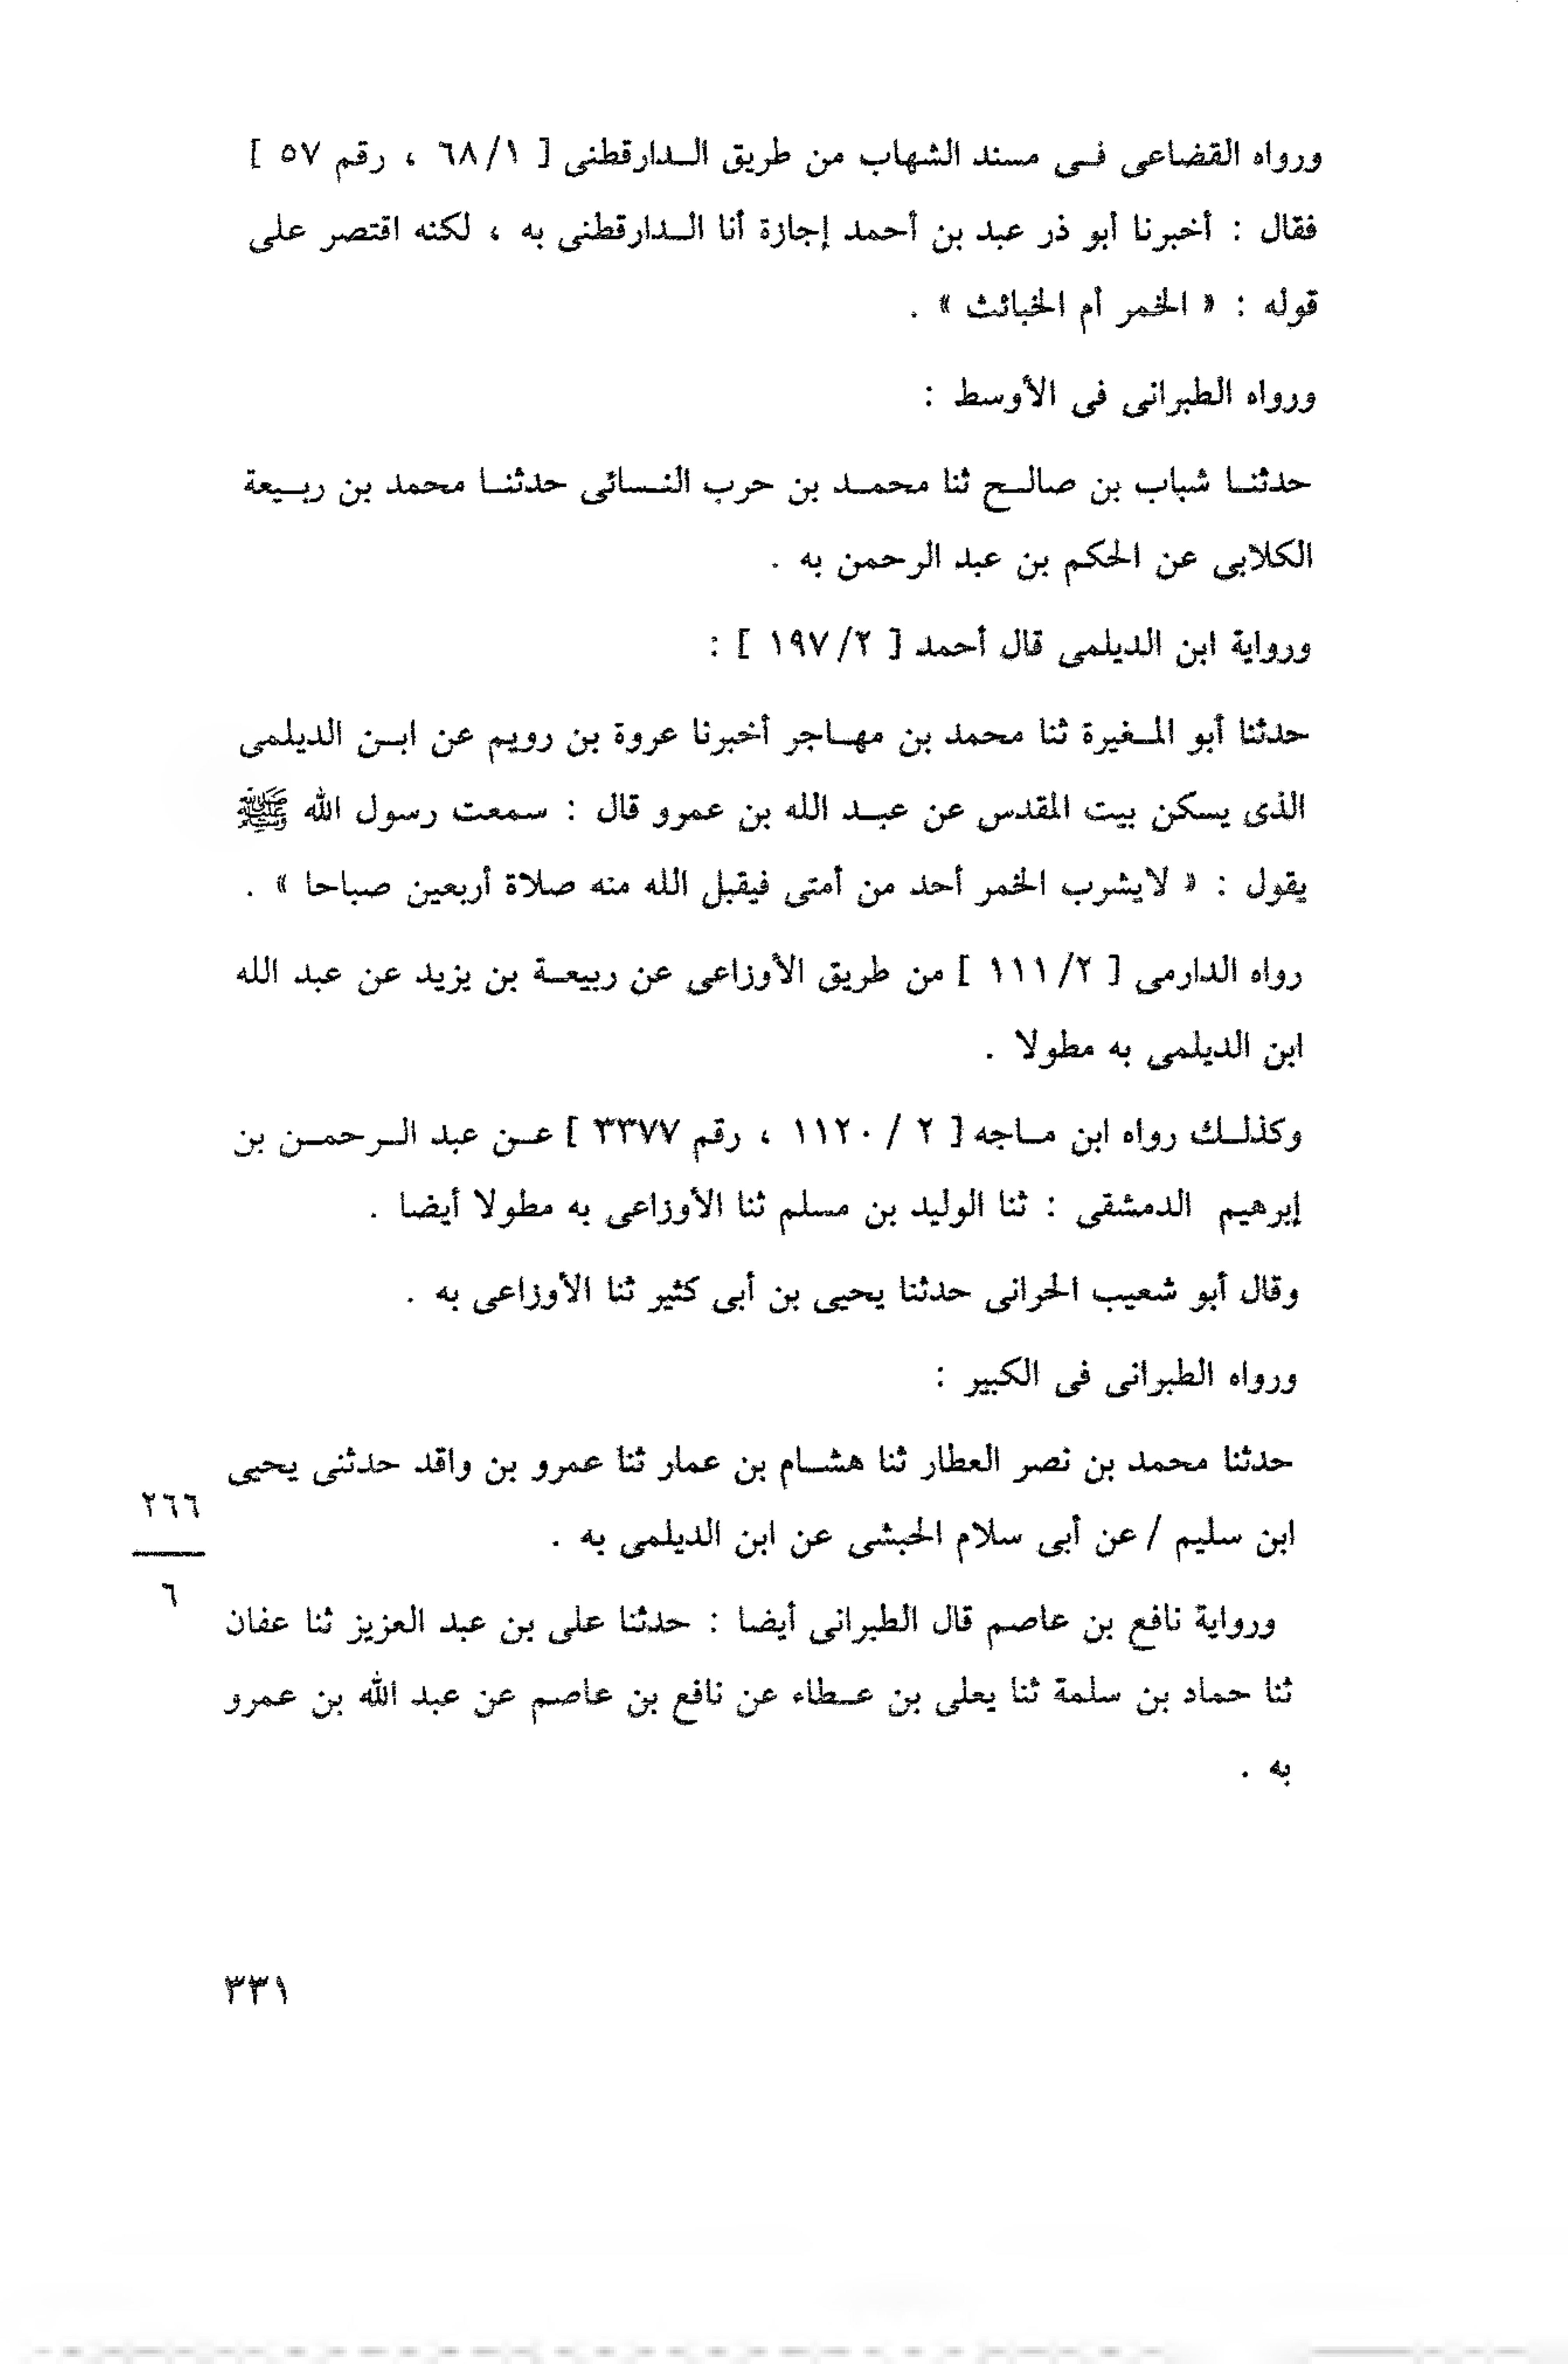 ورواه القضاعى فى مسند الشهاب من طريق الدارقطنى [ ٦٨/١ ، رقم ٥٧ ]
فقال : أخبرنا أبو ذر عبد بن أحمد إجازة أنا الدارقطنى به ، لكنه اقتصر على
قوله : « الخمر أم الخبائث » .
ورواه الطبرانى فى الأوسط :
حدثنا شباب بن صالح ثنا محمد بن حرب النسائى حدثنا محمد بن ربيعة
الكلابى عن الحكم بن عبد الرحمن به .
ورواية ابن الديلمى قال أحمد [ ١٩٧/٢ ] :
حدثنا أبو المغيرة ثنا محمد بن مهاجر أخبرنا عروة بن رويم عن ابن الديلمى
الذى يسكن بيت المقدس عن عبد الله بن عمرو قال : سمعت رسول الله ﷺ
يقول : « لايشرب الخمر أحد من أمتى فيقبل الله منه صلاة أربعين صباحا » .
رواه الدارمى [ ١١١/٢ ] من طريق الأوزاعى عن ربيعة بن يزيد عن عبد الله
ابن الديلمى به مطولا .
وكذلك رواه ابن ماجه [ ٢ / ١١٢٠ ، رقم ٣٣٧٧ ] عن عبد الرحمن بن
إبرهيم الدمشقى : ثنا الوليد بن مسلم ثنا الأوزاعى به مطولا أيضا .
وقال أبو شعيب الحرانى حدثنا يحيى بن أبى كثير ثنا الأوزاعى به .
ورواه الطبرانى فى الكبير :
حدثنا محمد بن نصر العطار ثنا هشام بن عمار ثنا عمرو بن واقد حدثنى يحيى
ابن سليم / عن أبى سلام الحبشى عن ابن الديلمى به .
٢٦٦
٦
ورواية نافع بن عاصم قال الطبرانى أيضا : حدثنا على بن عبد العزيز ثنا عفان
ثنا حماد بن سلمة ثنا يعلى بن عطاء عن نافع بن عاصم عن عبد الله بن عمرو
به .
٣٣١